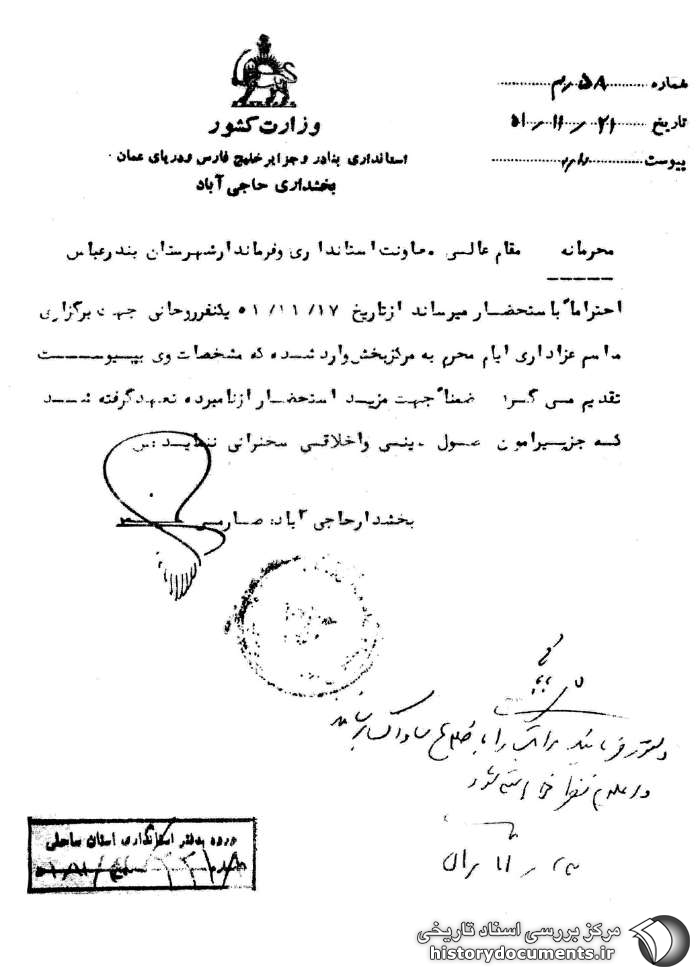 شماره ۵۸رم
تاریخ ۲۱ر۱۱ر۵۱
پیوست
وزارت کشور
استانداری بنادر و جزایر خلیج فارس و دریای عمان
بخشداری حاجی آباد
محرمانه مقام عالی معاونت استانداری و فرماندار شهرستان بندرعباس
احتراماً باستحضار میرساند از تاریخ ۱۷/۱۱/۵۱ یکنفر روحانی جهت برگزاری
مراسم عزاداری ایام محرم به مرکز بخش وارد شده که مشخصات وی بپیوست
تقدیم می گردد ضمناً جهت مزید استحضار از نامبرده تعهد گرفته شد
که جز پیرامون اصول دینی و اخلاقی سخنرانی ننماید.
بخشدار حاجی آباد: صارمی
دستور فرمایند مراتب را به اطلاع ساواک برسانند
و اعلام نظر خواسته شود
ورود بدفتر استانداری استان ساحلی
شماره
مرکز بررسی اسناد تاریخی
historydocuments.ir